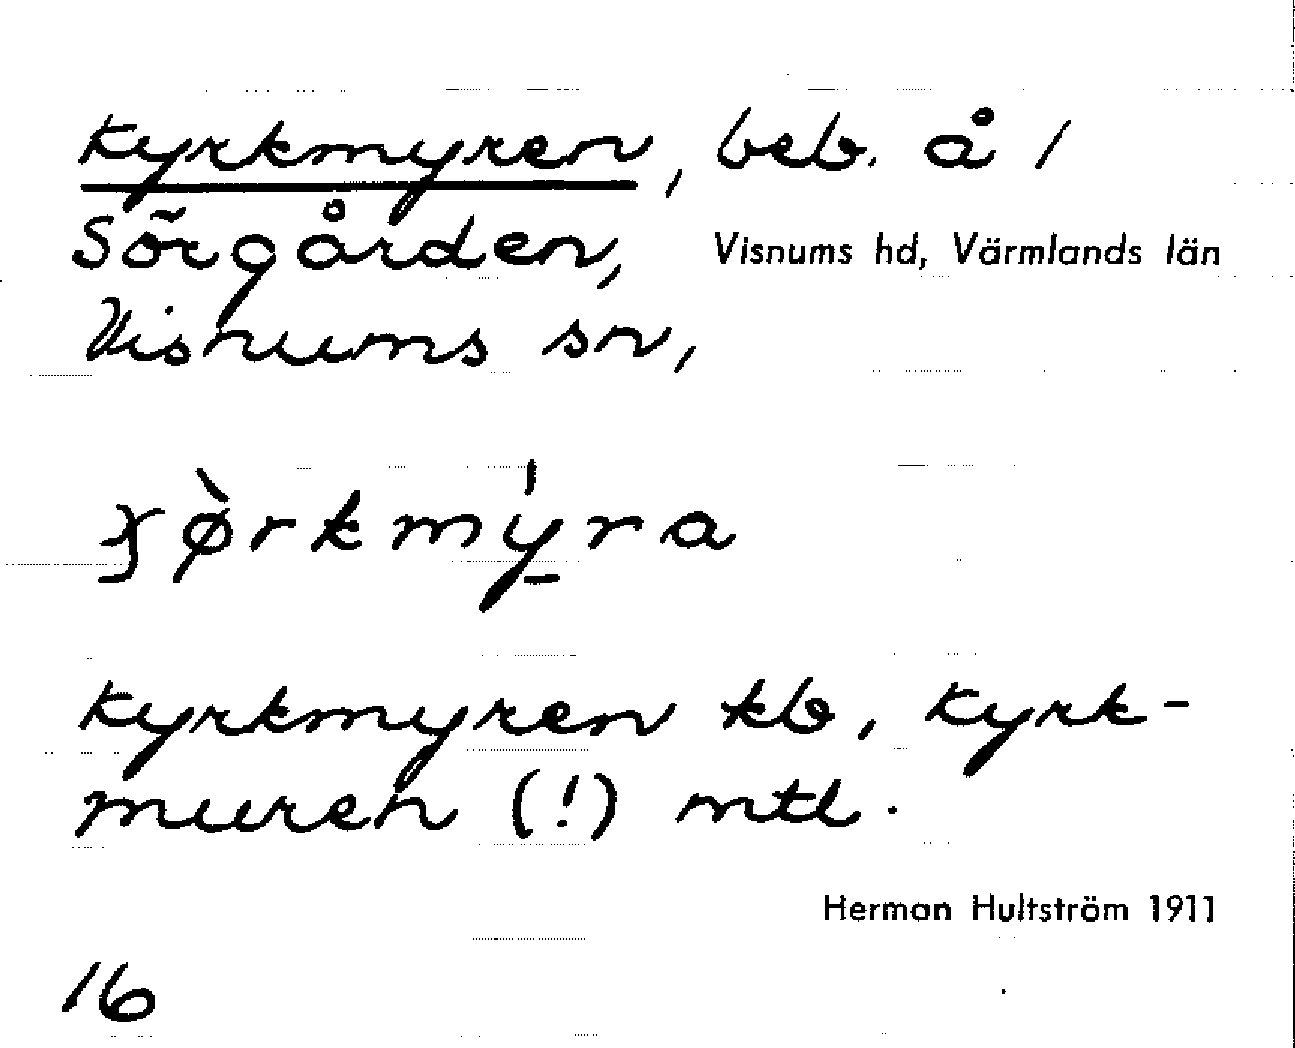 Kyrkmyren, beb. å 1
Sörgården, Visnums hd, Värmlands län
Visnums sn,
kyrkmyren kb, kyrk-
muren (!) mtl.
Herman Hultström 1911
16